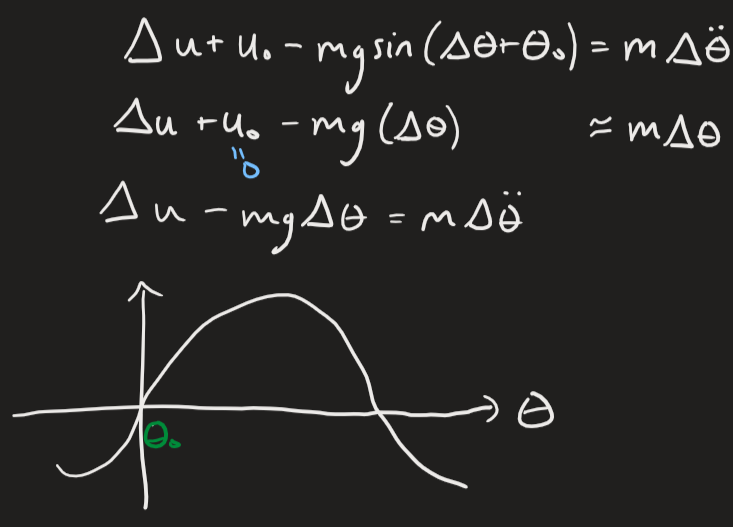 Δu + u₀ - mg sin(Δθ+θ₀) = mΔθ̈
Δu + u₀ - mg(Δθ) ≈ mΔθ
"0
Δu - mgΔθ = mΔθ̈
θ
θ₀